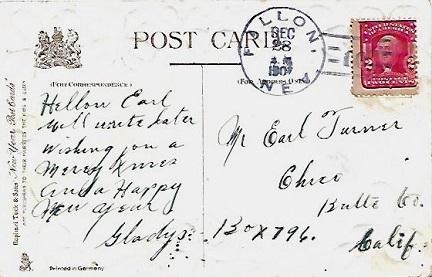 POST CARD
FALLON,
DEC
28
1907
NEV.
(FOR CORRESPONDENCE)
Hellow Earl
Will write later
Wishing you a
Merry Xmas
and a Happy
New Year
Gladys
Mr Earl Turner
Chico
Butte Co.
Box 796.
Calif.
Raphael Tuck & Sons' "New Year Post Cards"
Printed in Germany
2 2